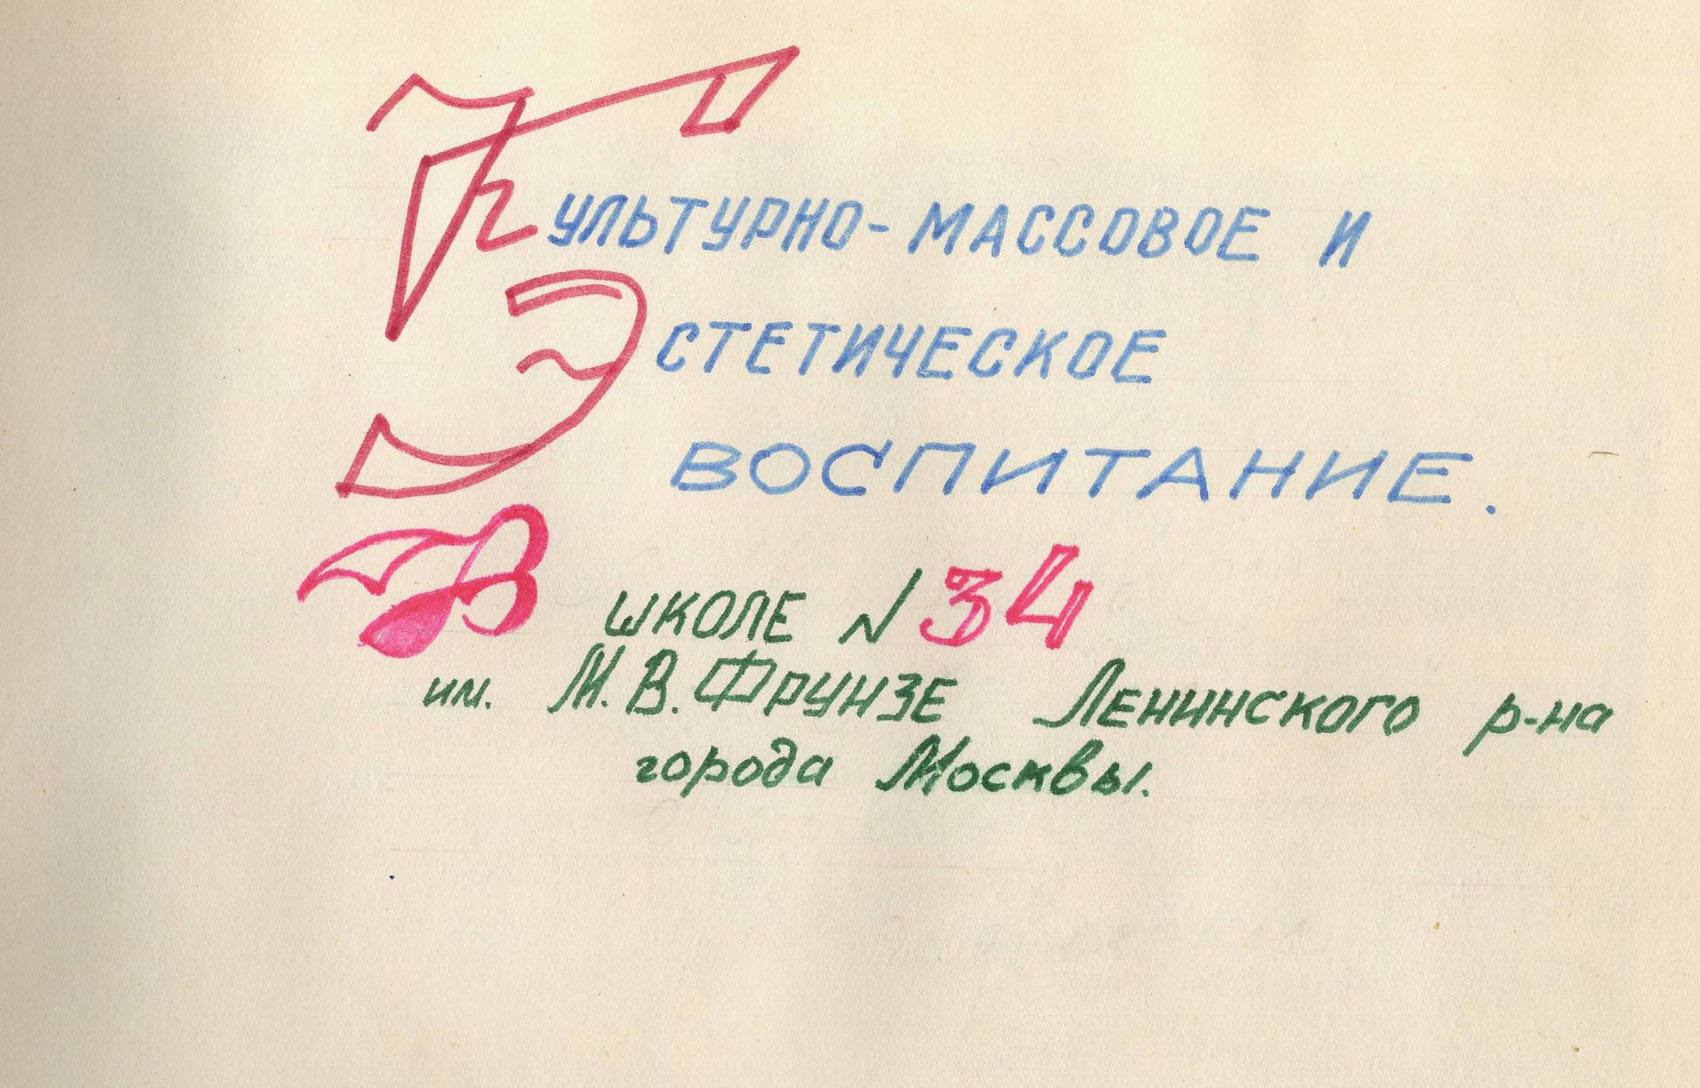 Культурно-массовое и
Эстетическое
воспитание.
В школе N 34
им. М.В. Фрунзе Ленинского р-на
города Москвы.